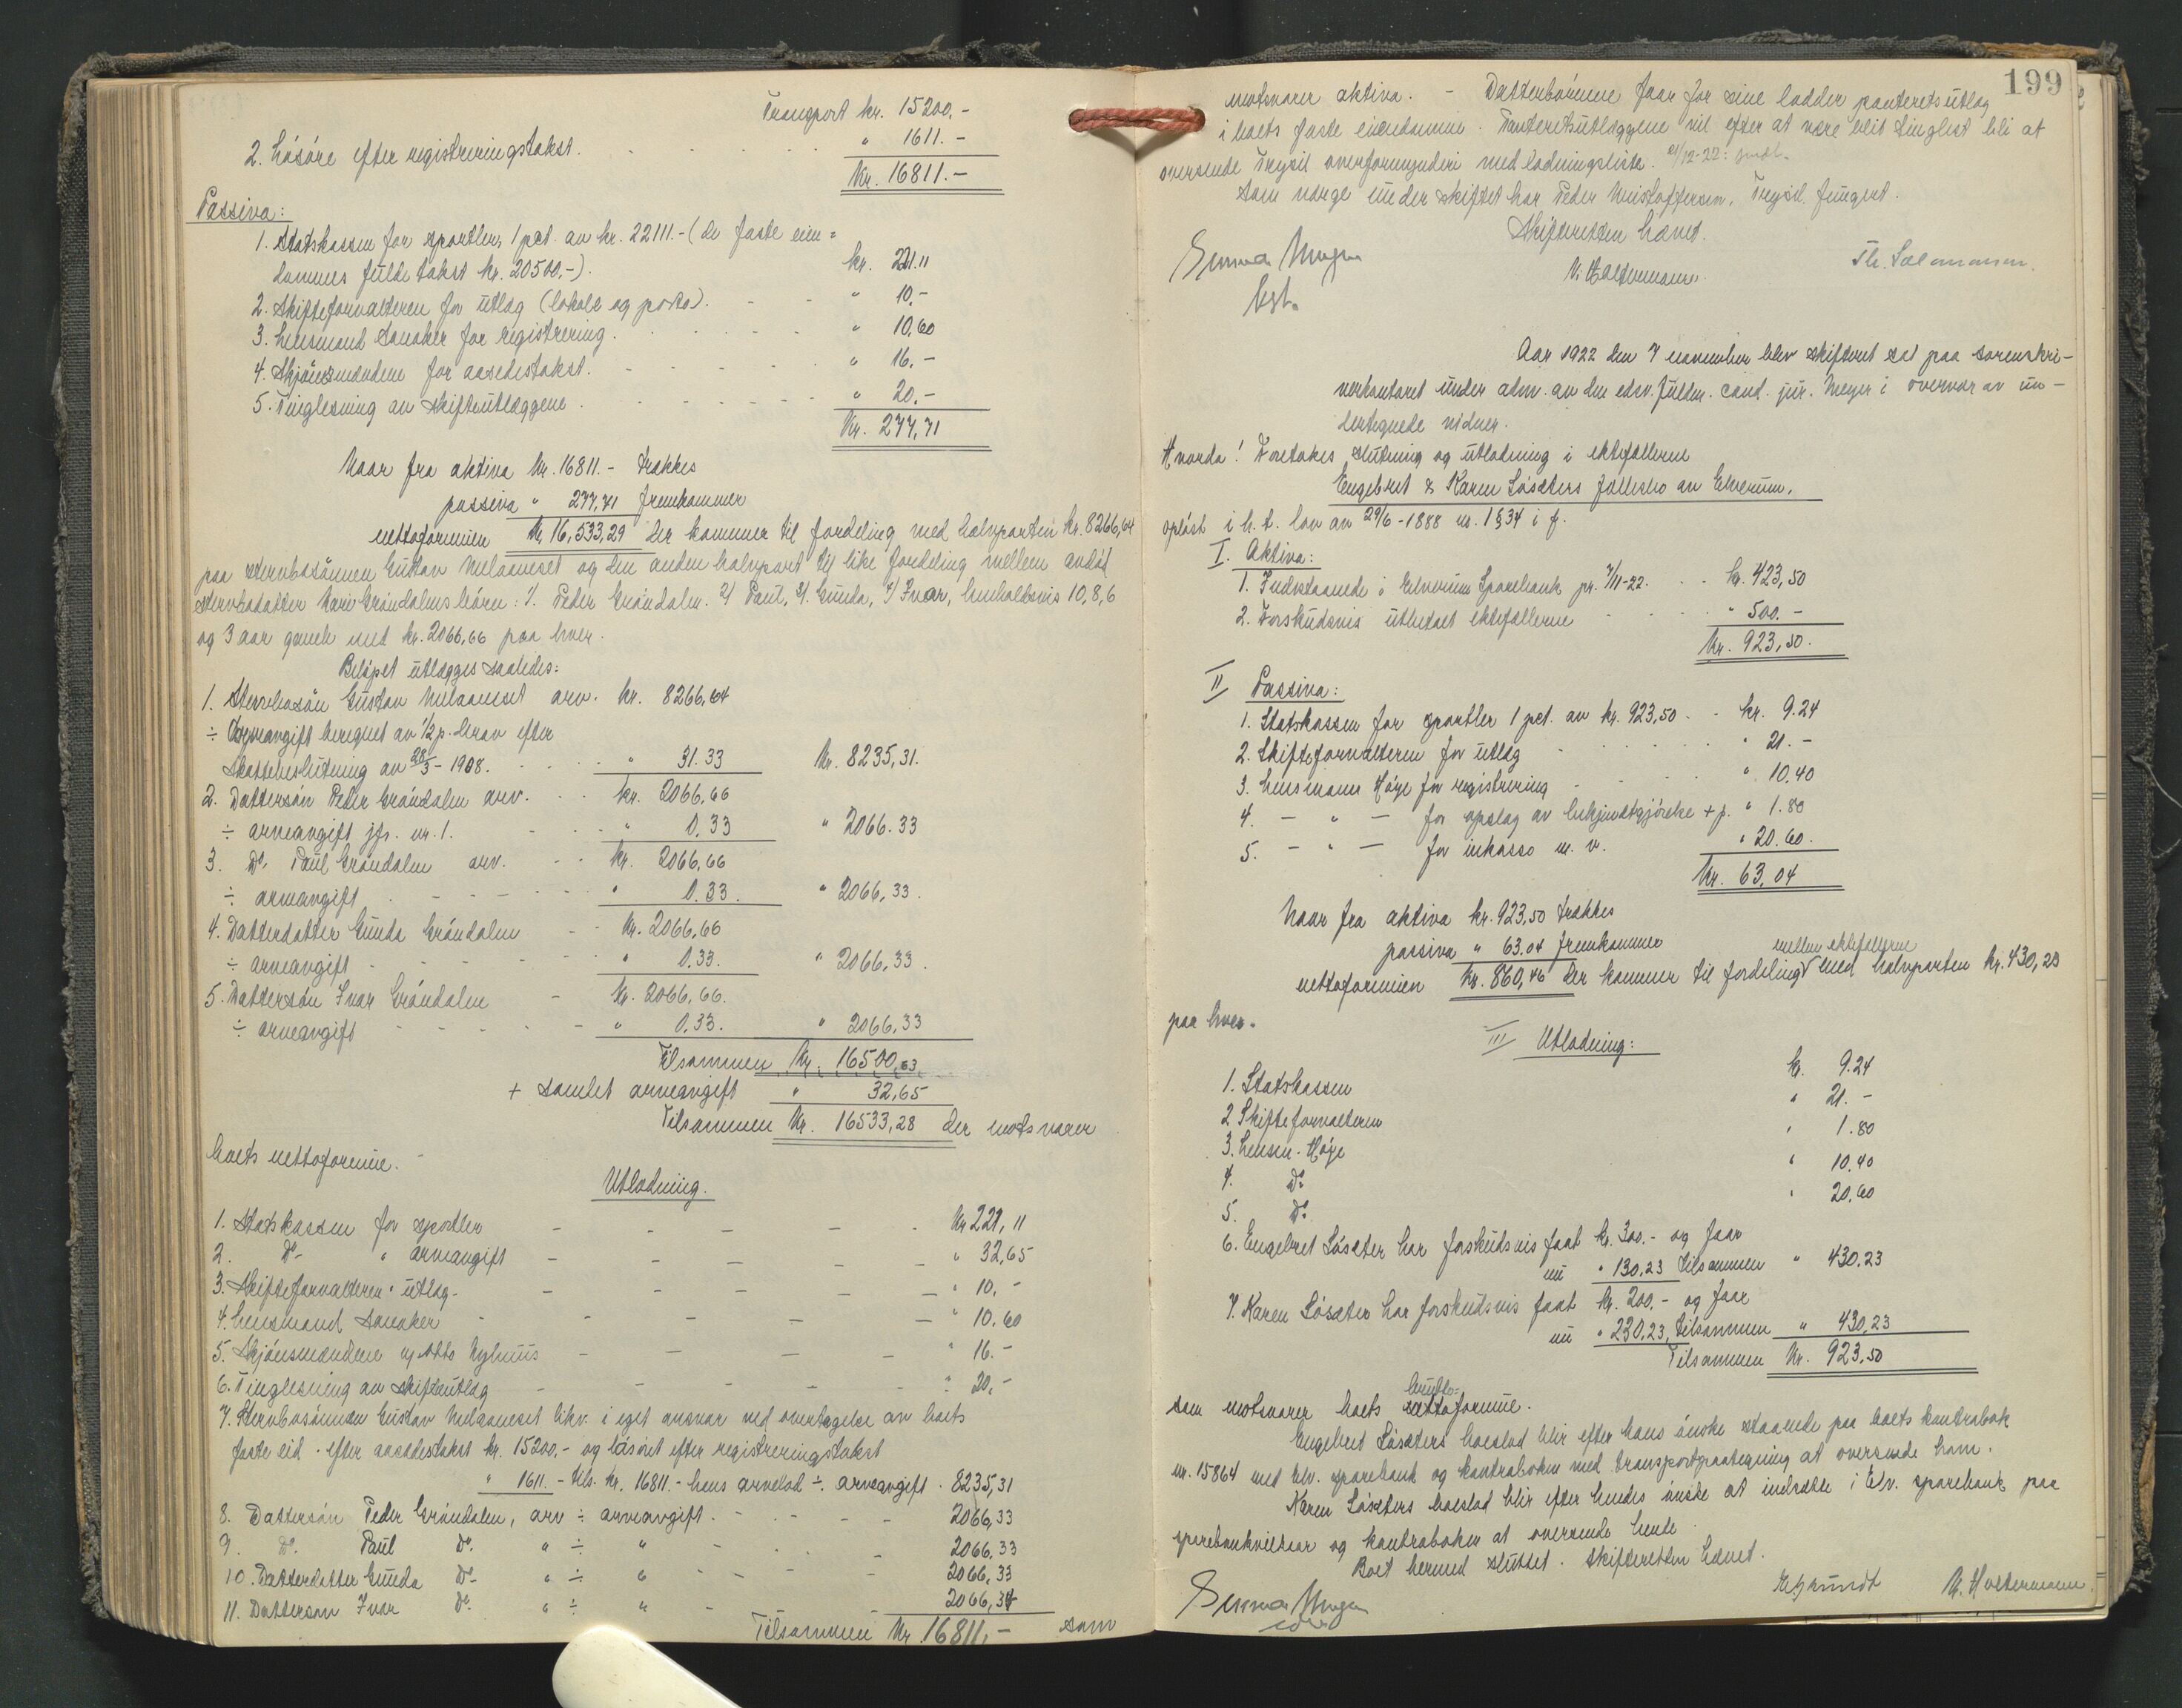 Transport kr. 15200,-
2. Løsøre efter registreringstakst. " 1611.-
Kr. 16811.-
Passiva:
1. Statskassen for sportler, 1 pct. av kr. 22111.- (de faste eien=
dommes fulde takst kr. 20500,-). kr. 221.11
2. Skifteforvalteren for utlæg (lokale og porto). - - " 10.-
3. Lensmand Sanaker for registrering. " 10,60
4. Skjønsmændene for aasædestakst. " 16.-
5. Tinglesning av skifteutlæggene. " 20.-
Kr. 277,71
Naar fra aktiva kr. 16811.- trækkes
passiva " 277,71 fremkommer
nettoformuen kr. 16,533,29 der kommer til fordeling med halvparten kr. 8266,64
paa stervbosønnen Gustav Nelaaneset og den anden halvpart til like fordeling mellem avdød
stervbodatter Kari Grøndalens børn: 1. Peder Grøndalen. 2) Paul, 3. Gunda, 4) Ivar, henholdsvis 10, 8, 6
og 3 aar gamle med kr. 2066,66 paa hver.
Beløpet utlægges saaledes:
1. Stervbosøn Gustav Nelaaneset arv. kr. 8266,64
÷ Arveavgift beregnet av 1/2 p. derav efter
Skattebeslutning av 28/3 - 1908. " 31.33 Kr. 8235,31.
2. Dattersøn Peder Grøndalen arv. kr. 2066,66
÷ arveavgift jfr. nr. 1. " 0.33 " 2066.33
3. Do. Paul Grøndalen arv. kr. 2066,66
÷ arveavgift " 0.33. " 2066,33.
4. Datterdatter Gunda Grøndalen kr. 2066,66
÷ arveavgift " 0.33. " 2066,33.
5. Dattersøn Ivar Grøndalen kr. 2066,66.
÷ arveavgift " 0.33. " 2066,33
Tilsammen Kr. 16500,63
+ samlet arveavgift " 32,65
Tilsammen Kr. 16533,28 der motsvarer
boets nettoformue.
Utlodning.
1. Statskassen for sportler Kr 221,11
2. Do- " arveavgift " 32,65
3. Skifteforvalteren " utlæg- " 10,-
4. Lensmand Sanaker " 10,60
5. Skjønsmændene " 16.-
6. Tinglesning av skifteutlæg " 20,-
7. Stervbosønnen Gustav Nelaaneset likv. i eget ansvar ved overtagelse av boets
faste eid. efter aasædestakst kr. 15200,- og løsøret efter registreringstakst
" 1611.- tils. kr. 16811.- hans arvelod ÷ arveavgift. 8235,31
8. Dattersøn Peder Grøndalen, arv ÷ arveavgift. 2066,33
9. Do. Paul Do. " ÷ " 2066,33
10. Datterdatter Gunda Do- " ÷ " 2066,33
11. Dattersøn Ivar Do. " ÷ " 2066,34
Tilsammen Kr. 16811,- som
199
motsvarer aktiva. - Datterbørnene faar for sine lodder panteretsutlæg
i boets faste eiendomme. Panteretsutlæggene vil efter at være blit tinglest bli at
oversende Trysil overformynderi med lodningsliste. 9/12-22:
Som verge under skiftet har Peder Kristoffersen, Trysil fungert.
Skifteretten hævet.
N. Haltermann. Th. Salomonsen.
Aar 1922 den 7 november blev skifteret sat paa sorenskri-
verkontoret under adm. av den edsv. fuldm. cand. jur. Meyer i overvær av un-
dertegnede vidner.
Hvorda! Foretokes slutning og utlodning i ektefællerne
Engebret & Karen Løsæters fællesbo av Elverum.
opløst i h. t. lov av 29/6 - 1888 nr. 1 § 34 i f.
I. Aktiva:
1. Indestaaende i Elverum Sparebank pr. 7/11-22. kr. 423,50
2. Forskudsvis utbetalt ektefællerne " 500.-
Kr. 923,50.
II Passiva:
1. Statskassen for sportler 1 pct. av kr. 923,50 - - kr. 9.24
2. Skifteforvalteren for utlæg " 21.-
3. Lensmann Høye for registrering " 10.40
4. - " - for opslag av bekjendtgjørelse + p. " 1.80
5. - " - for inkasso m. v. " 20.60.
Kr. 63,04
Naar fra aktiva kr. 923,50 trækkes
passiva " 63.04 fremkommer
mellem ektefællerne
nettoformuen kr. 860,46 der kommer til fordeling med halvparten kr. 430,23
paa hver.
III Utlodning:
1. Statskassen kr. 9.24
2 Skifteforvalteren " 21.-
3. Lensm. Høye " 1.80
4. Do " 10.40
5. Do. " 20.60
6. Engebret Løsæter har forskudsvis faat kr. 300.- og faar
nu " 130,23 tilsammen " 430.23
7. Karen Løsæter har forskudsvis faat kr. 200.- og faar
nu " 230,23, tilsammen " 430,23
Tilsammen Kr. 923.50
brutto=
som motsvarer boets nettoformue.
Engebret Løsæters boeslod blir efter hans ønske staaende paa boets kontrabok
nr. 15864 med Elv. sparebank og kontraboken med transportpaategning at oversende ham.
Karen Løsæters boeslod blir efter hendes ønske at indsætte i Elv. sparebank paa
sparebankvilkaar og kontraboken at oversende hende.
Boet hermed sluttet. Skifteretten hævet.
N. Haltermann.